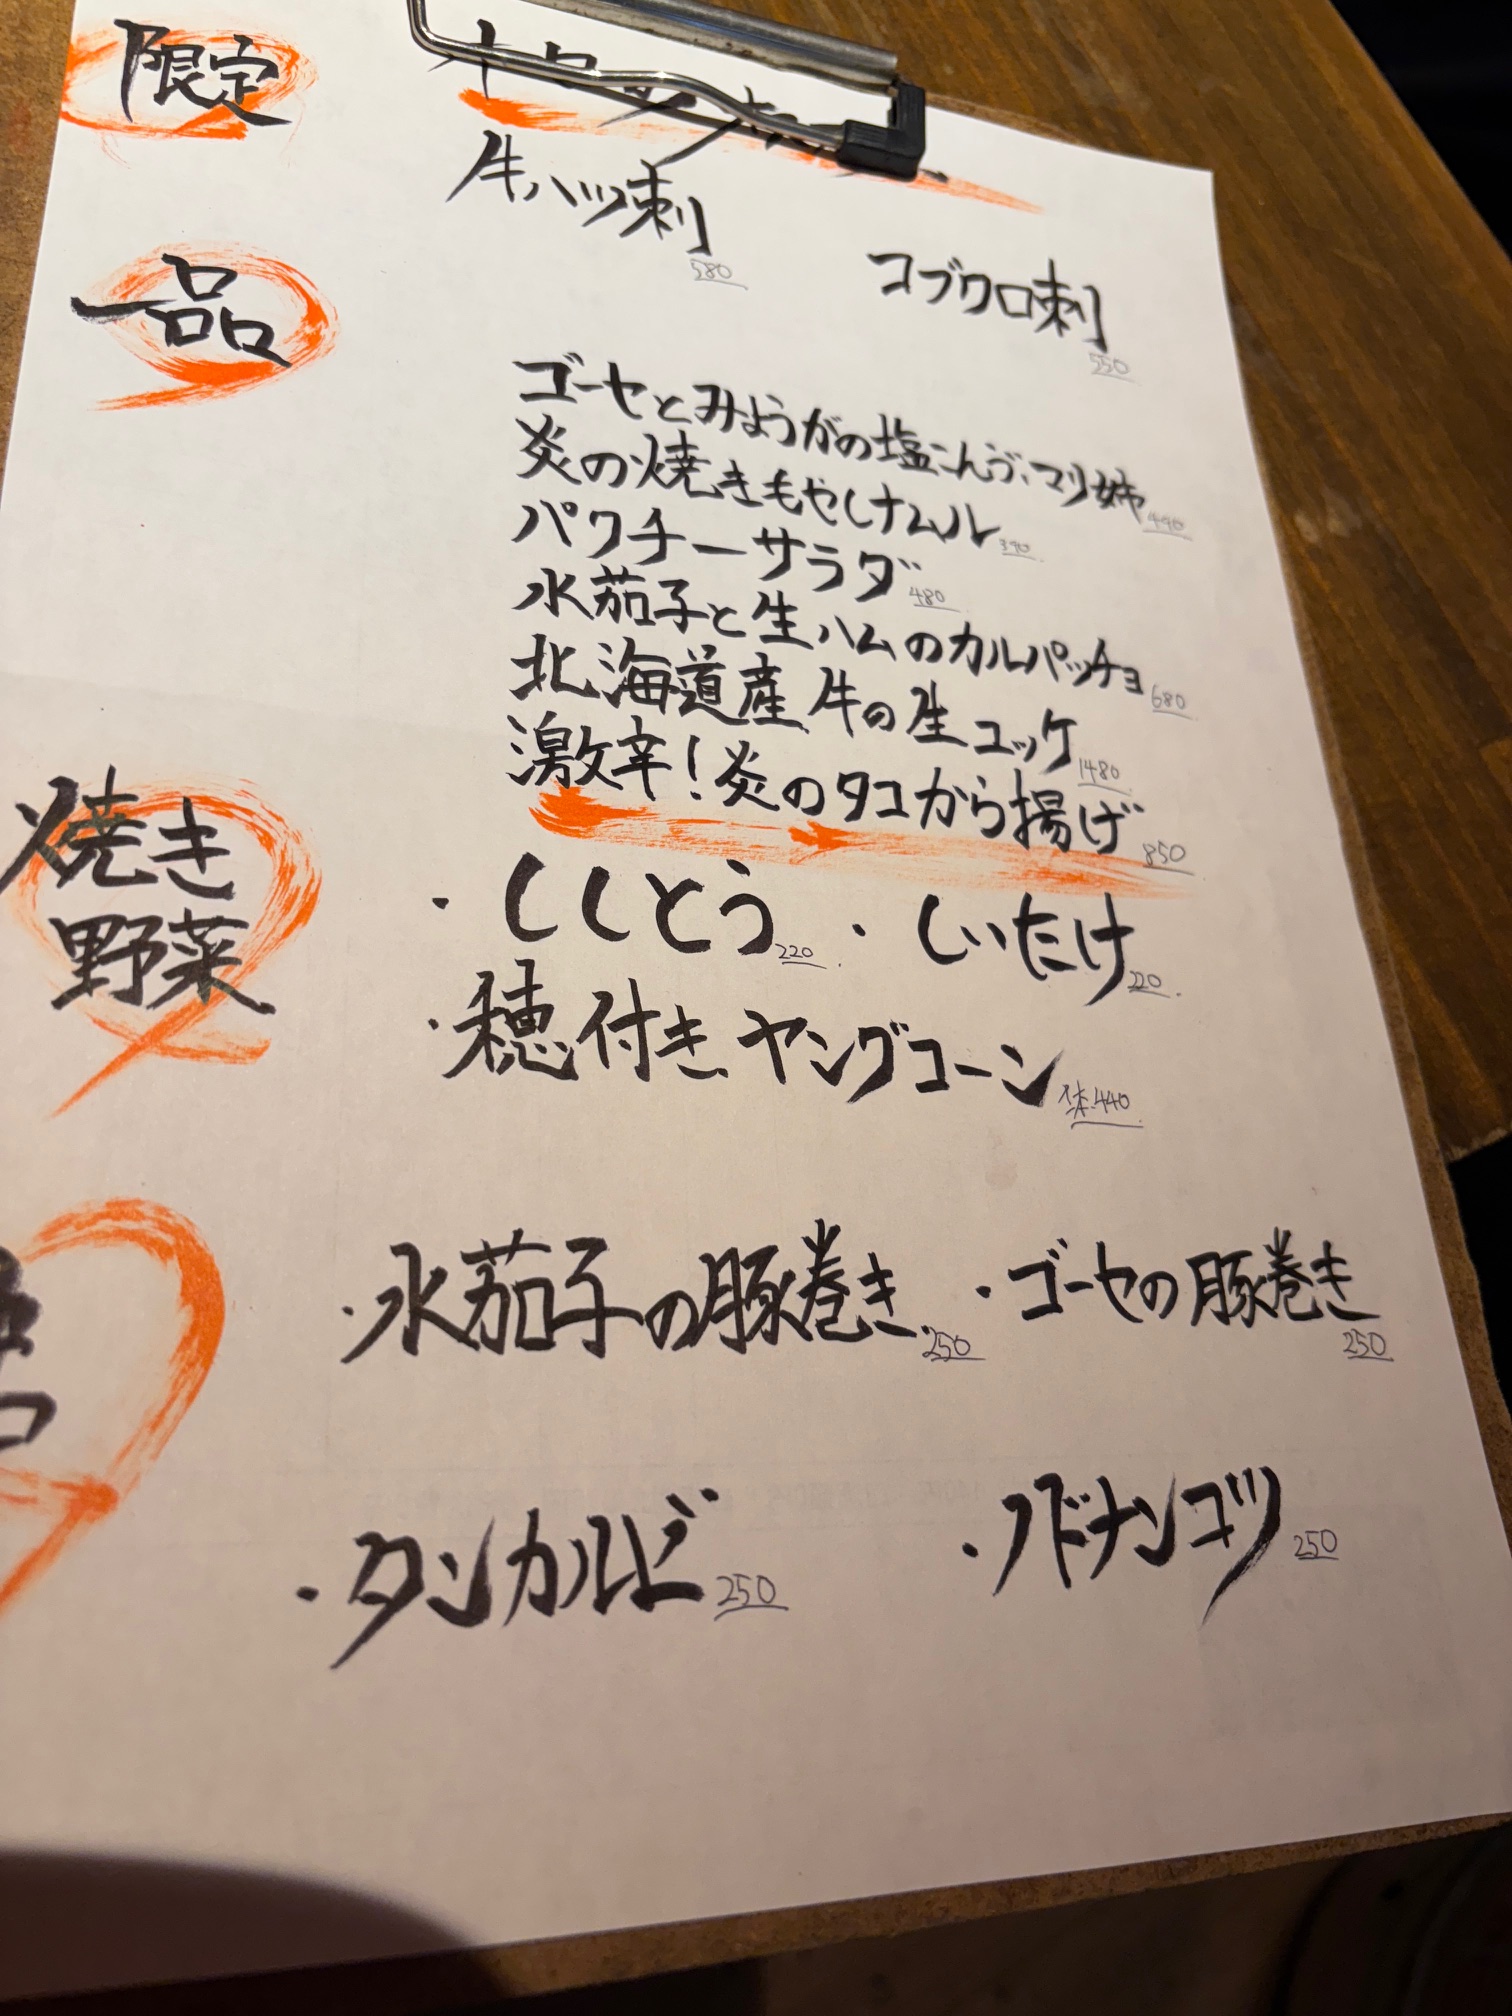 限定
牛ハツ刺 580
コブクロ刺 550
一品
ゴーヤとみょうがの塩こんぶ、マリ姉 440
炎の焼きもやしナムル 390
パクチーサラダ 480
水茄子と生ハムのカルパッチョ 680
北海道産牛の生ユッケ 1480
激辛!炎のタコから揚げ 850
焼き
野菜
・ししとう 220 ・しいたけ 220
・穂付きヤングコーン 1本 440
・水茄子の豚巻き 250 ・ゴーヤの豚巻き 250
・タンカルビ 250 ・ノドナンコツ 250